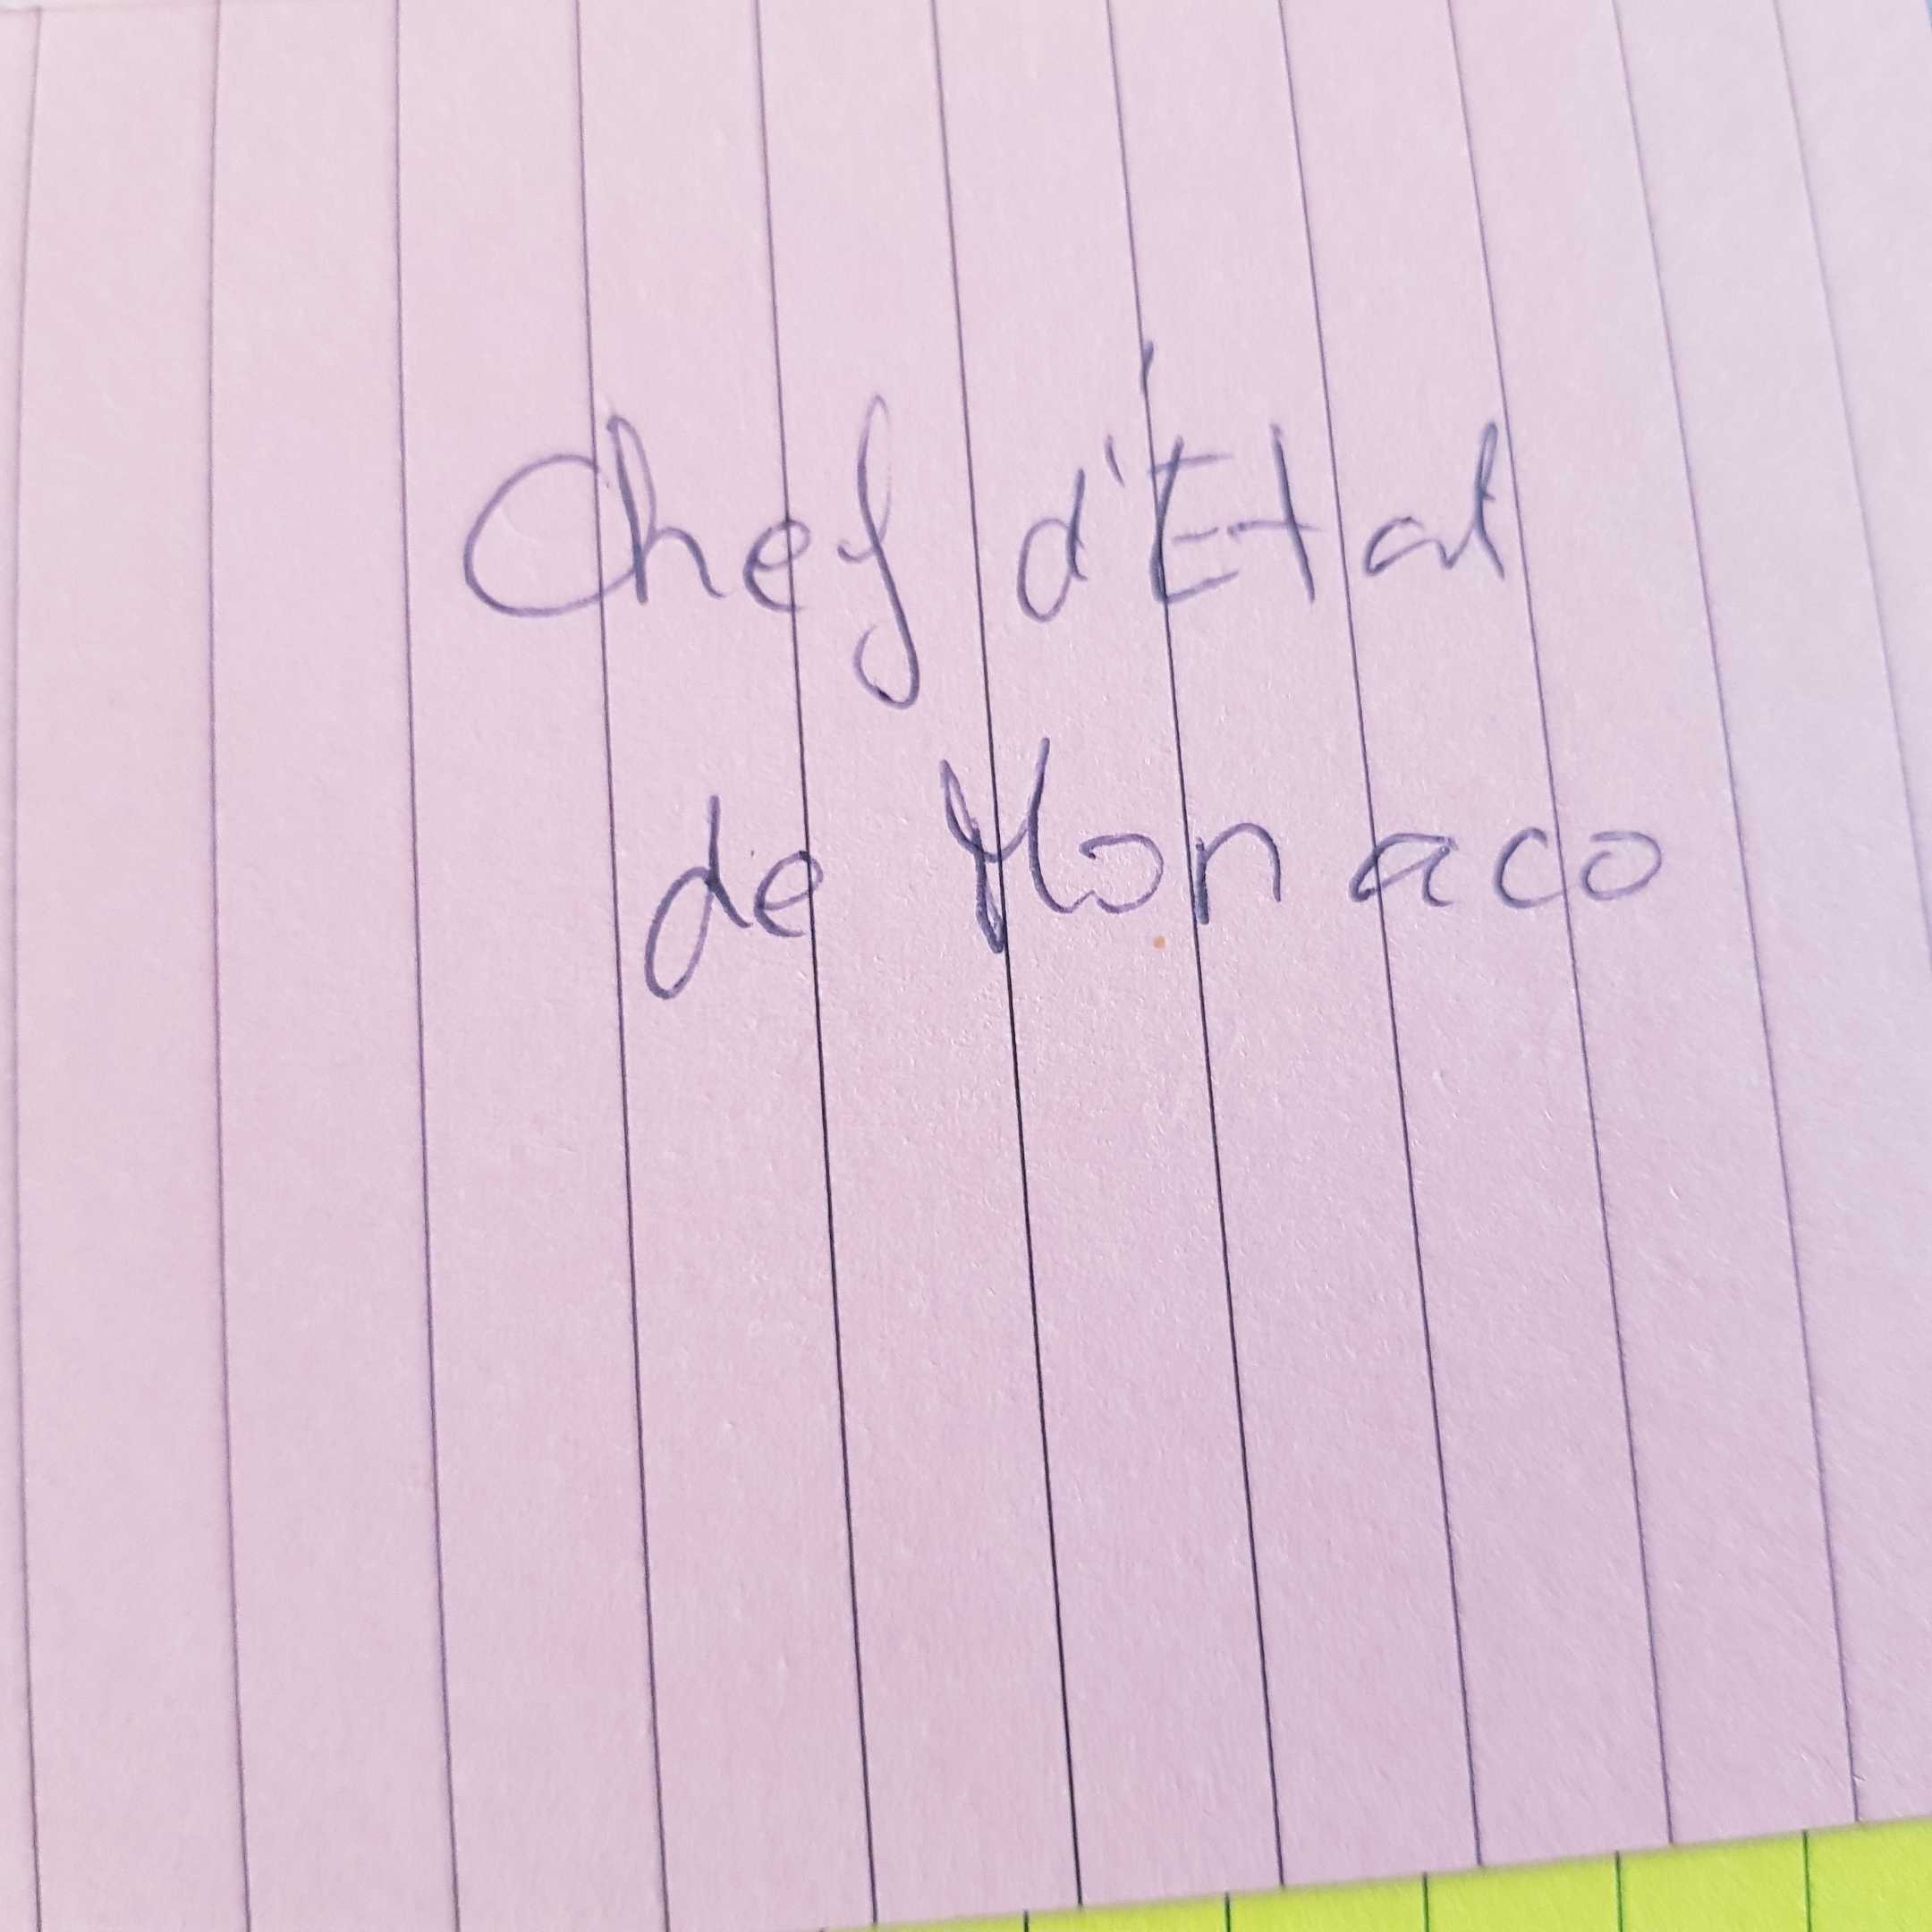 Chef d'État
de Monaco